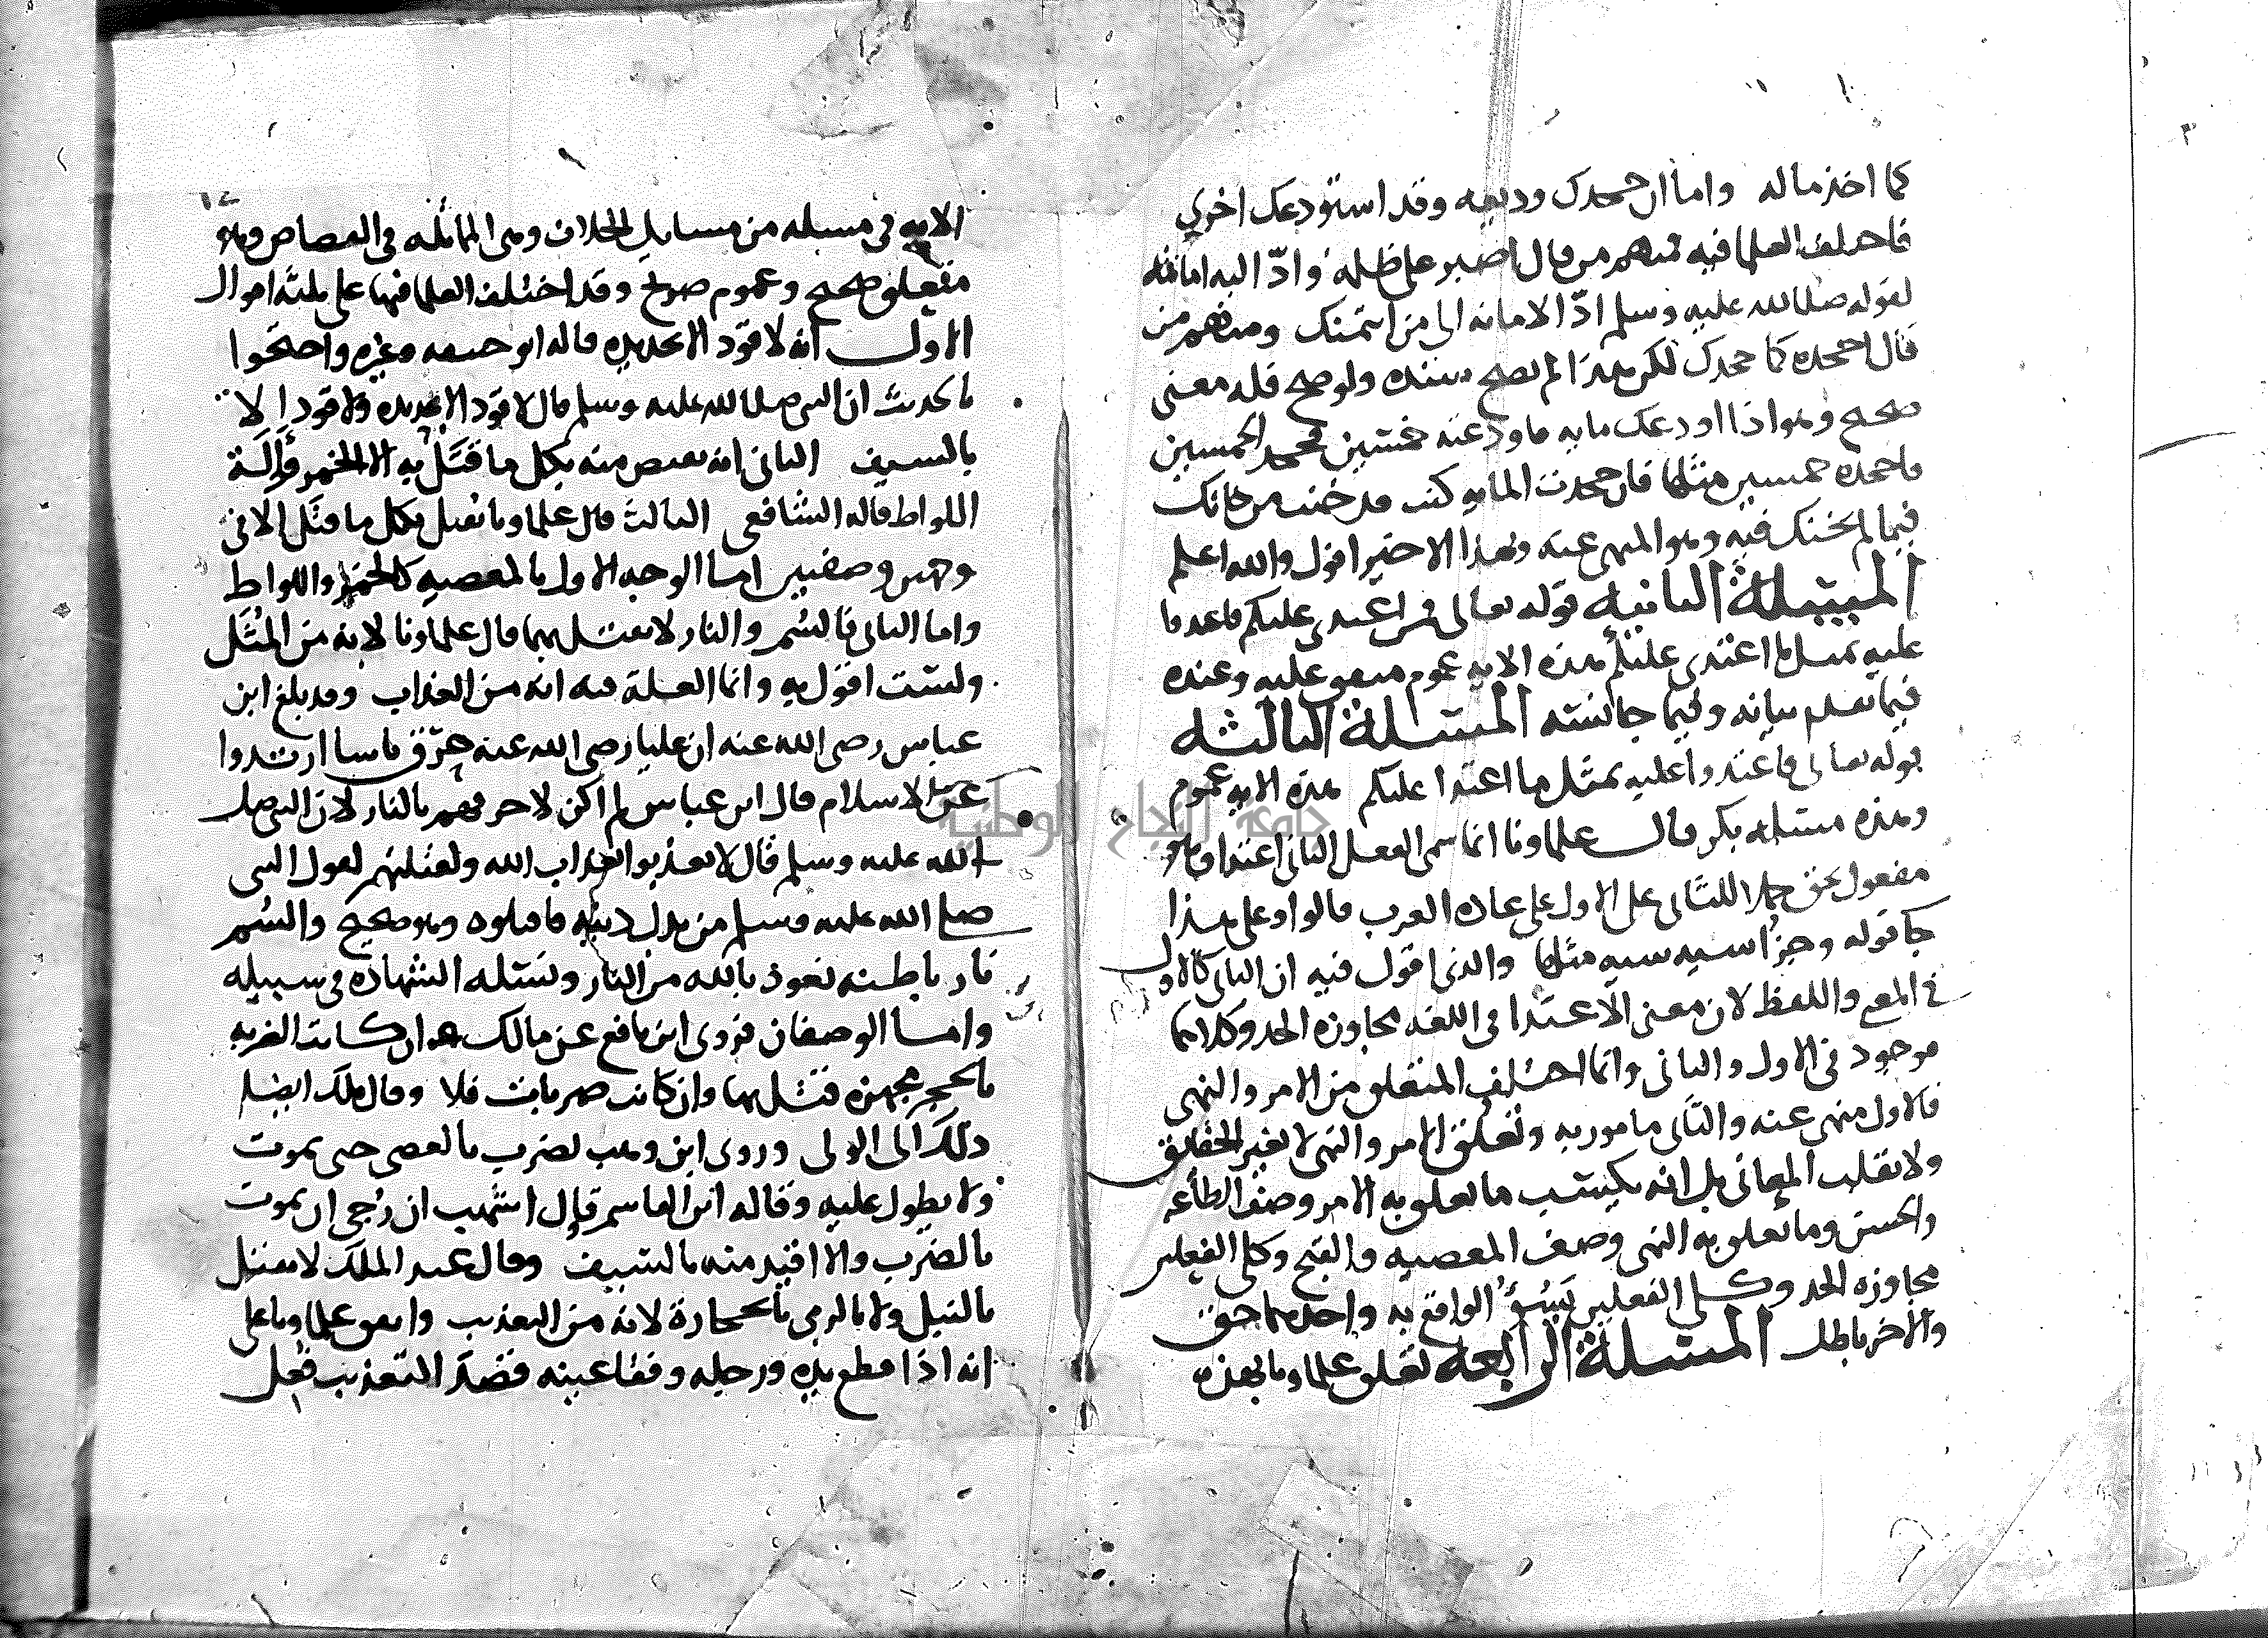 كما اخذ ماله واما ان جحدك وديعه وقد استودعك اخري
فاختلف العلما فيه فمنهم من قال اصبر على ظلمه واد اليه امانته
لقوله صلى الله عليه وسلم ادّ الامانه الى من ائتمنك ومنهم من
قال اجحده كما جحدك لكن هذا لم يصح سنده ولو صح فله معنى
صحيح وهو اذا اودعك مايه واودعته خمسين فجحد الخمسين
فاجحده خمسين مثلها فان جحدت المايه كنت قد خنت من خانك
فيما لم يخنك فيه وهو المنهى عنه وبهذا الاخير اقول والله اعلم
المسئلة الثانيه قوله تعالى فمن اعتدى عليكم فاعتدوا
عليه بمثل ما اعتدى عليكم هذه الايه عموم متفق عليه وعنده
فيما تقدم بيانه وفيما جانسته المسئلة الثالثه
قوله تعالى فاعتدوا عليه بمثل ما اعتدا عليكم هذه الايه عموم
وهذه مسئله بكر قال علماونا انما سمى الفعل الثانى اعتدا وهو
مفعول بحق حملا للثانى على الاول على عادة العرب قالوا وعلى هذا
جا قوله وجزا سيه سيه مثلها والذى اقول فيه ان الثانى كالاول
فى المعنى واللفظ لان معنى الاعتدا فى اللغه مجاوزه الحد وكلاهما
موجود فى الاول والثانى وانما اختلف المتعلق من الامر والنهى
فالاول منهى عنه والثانى مامور به وتعلق الامر والنهى لا يغير الحقايق
ولا يقلب المعانى بل انه يكسب ما تعلق به الامر وصف الطاعه
والحسن وما تعلق به النهى وصف المعصيه والقبح وكلى الفعلين
مجاوزه الحد وكلى الفعلين يسوُ الواقع به واحدهما حق
والاخر باطل المسئلة الرابعه تعلق علماونا بهذه
الايه فى مسئله من مسايل الخلاف وهى المماثله فى القصاص وهو
متعلق صحيح وعموم صريح وقد اختلف العلما فيها على ثلثه اقوال
الاول انه لا قود الا بحديده قاله ابو حنيفه وغيره واحتجوا
بالحديث ان النبى صلى الله عليه وسلم قال لا قود الا بحديده ولا قود الا
بالسيف الثانى انه يقتص منه بكل ما قتل به الا الخمر وآلة
اللواط قاله الشافعى الثالث قال علماونا يقتل بكل ما قتل الا فى
وجهين وصفين اما الوجه الاول فالمعصيه كالخمر واللواط
واما الثانى فالسُم والنار لا يقتل بهما قال علماونا لانه من المُثَل
ولست اقول به وانما العلة فيه انه من العذاب وقد بلغ ابن
عباس رضى الله عنه ان عليا رضى الله عنه حرّق ناسا ارتدوا
عن الاسلام فقال ابن عباس لم اكن لاحرقهم بالنار لان النبى صلى
الله عليه وسلم قال لا تعذبوا بعذاب الله ولقتلتهم لقول النبى
صلى الله عليه وسلم من بدل دينه فاقتلوه وهو صحيح والسُم
نار باطنه نعوذ بالله من النار ونسئله الشهاده فى سبيله
واما الوصفان فروى ابن نافع عن مالك ان كانت الضربه
بالحجر مجهزه قتل بها وان كانت ضربات فلا وقال ملك ايضا
ذلك الى الولى وروى ابن وهب يضرب بالعصى حتى يموت
ولا يطول عليه وقاله ابن القاسم قال اشهب ان رُجى ان يموت
بالضرب والا اقيد منه بالسيف وقال عبد الملك لا يقتل
بالنبل ولا بالرمى بالحجارة لانه من التعذيب واتفق علماونا على
انه اذا قطع يده ورجله وفقا عينه قصد التعذيب فُعل